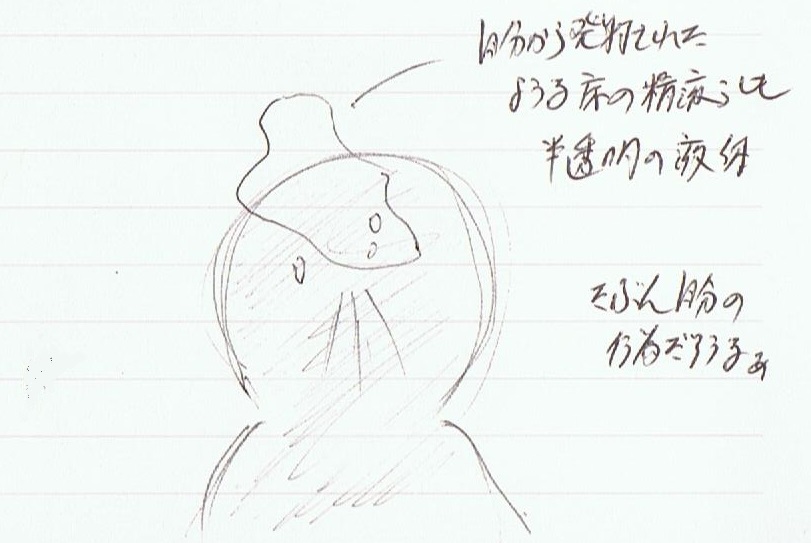 自分から発射された
ような床の精液らしき
半透明の液体
たぶん自分の
行為だろうなぁ